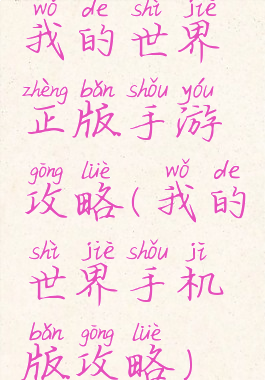 wǒ de shì jiè
我的世界
zhèng bǎn shǒu yóu
正版手游
gōng lüè wǒ de
攻略(我的
shì jiè shǒu jī
世界手机
bǎn gōng lüè
版攻略)